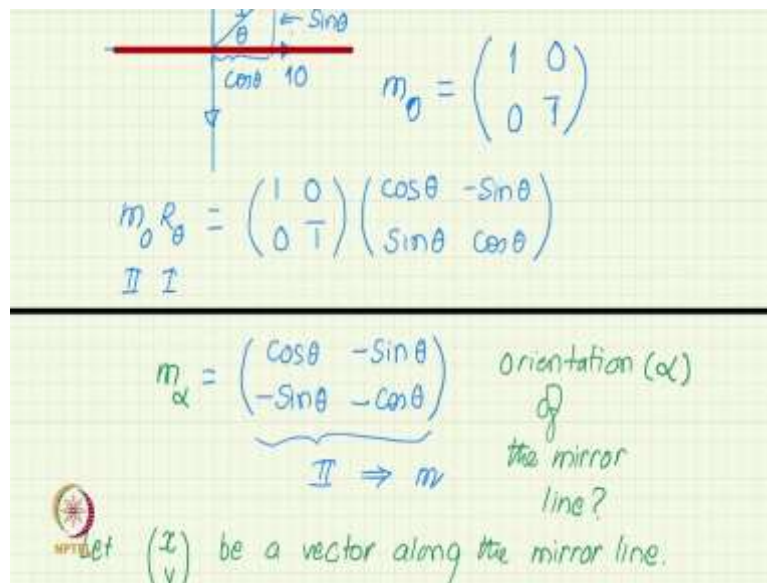 θ ← Sinθ
cosθ 10
m₀ = ( 1 0
0 1̅ )
m₀ R_θ = ( 1 0 ) ( cosθ -Sinθ )
( 0 1̅ ) ( Sinθ cosθ )
II I
m_α = ( cosθ -Sinθ )
( -Sinθ -cosθ )
II ⇒ m
orientation (α)
of
the mirror
line?
NPTEL
Let (x y) be a vector along the mirror line.